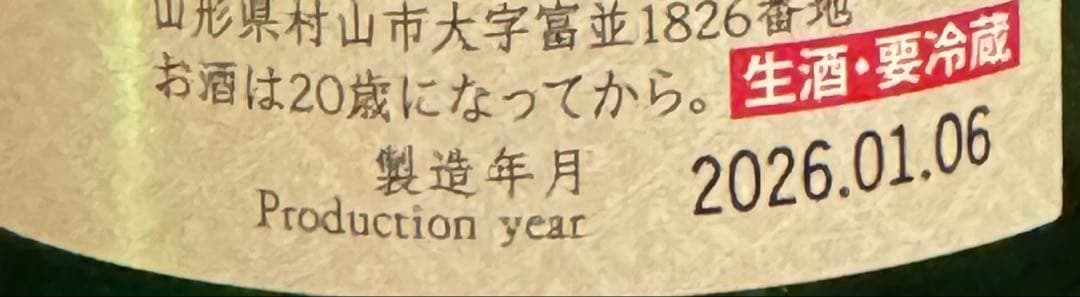 山形県村山市大字富並1826番地
お酒は20歳になってから。
生酒・要冷蔵
製造年月
Production year
2026.01.06